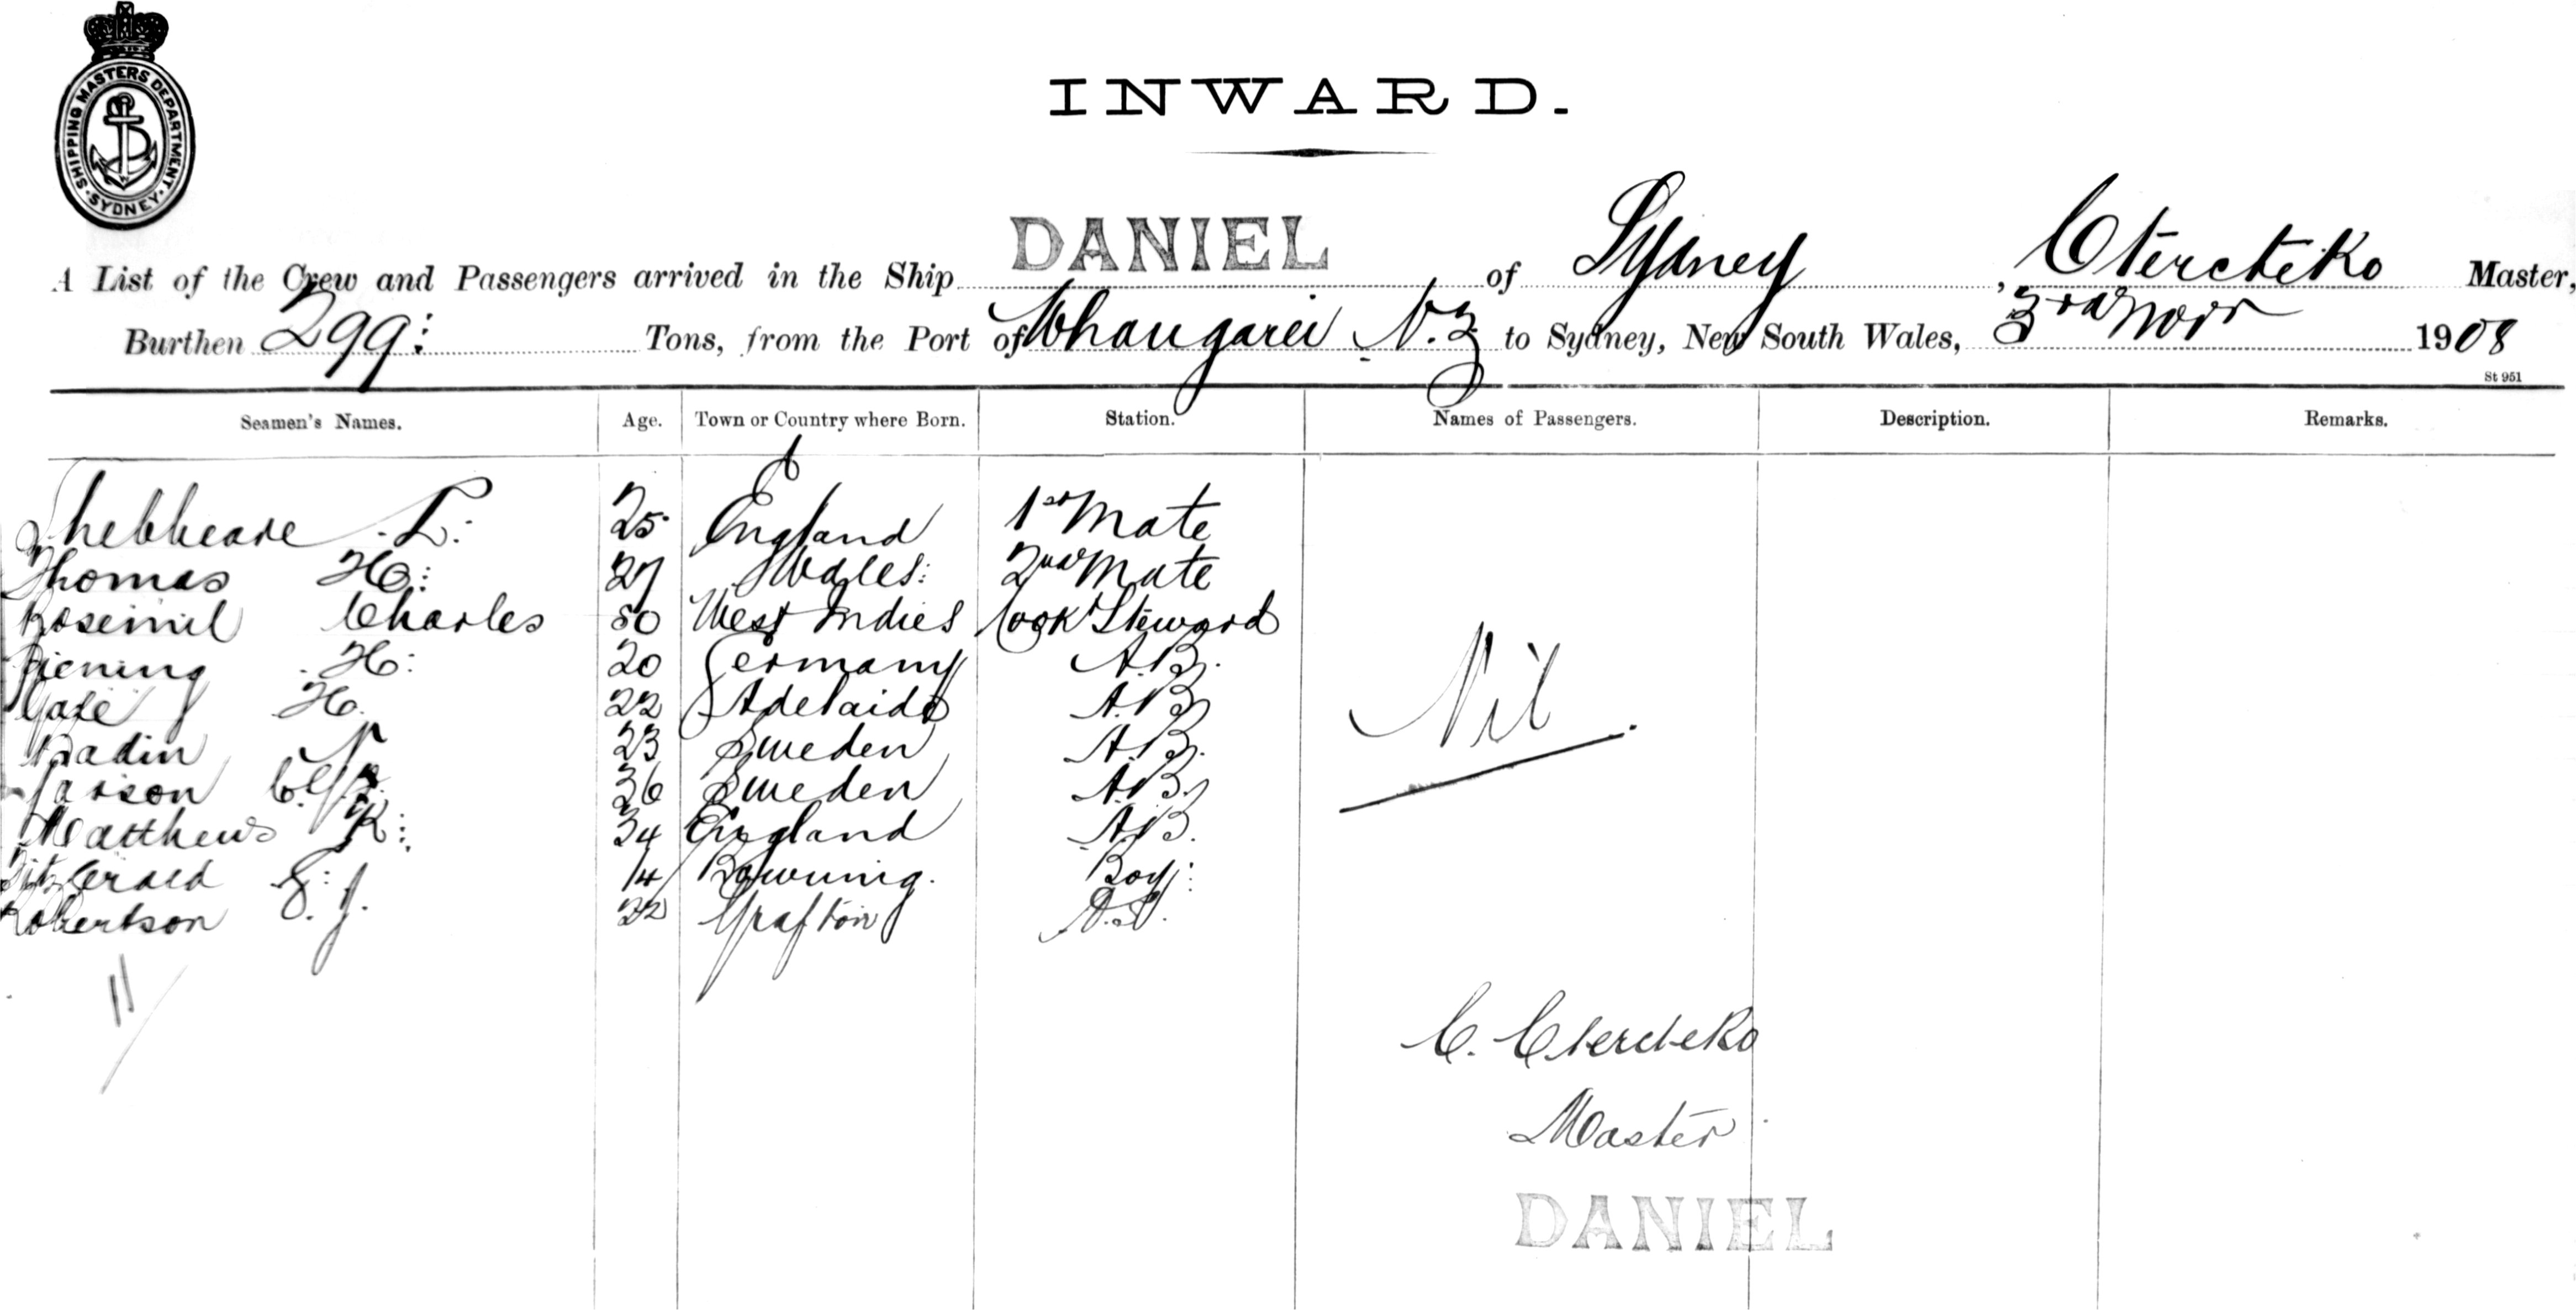 SHIPPING MASTERS DEPARTMENT · SYDNEY ·
INWARD.
A List of the Crew and Passengers arrived in the Ship DANIEL of Sydney, Master,
Burthen 299: Tons, from the Port of Whangarei N.Z to Sydney, New South Wales, 3rd Novr 1908
St 951
Seamen's Names. Age. Town or Country where Born. Station. Names of Passengers. Description. Remarks.
Shebbeare L: 25 England 1st Mate
Thomas H: 27 Wales: 2nd Mate
Charles 50 West Indies Cook Steward
H: 20 Germany A.B.
H. 22 Adelaide A.B
23 Sweden A.B.
36 Sweden A.B.
Matthews R: 34 England A.B.
FitzGerald 14 Bowning. Boy:
Robertson J. 22 Grafton O.S.
Nil.
11
Master
DANIEL